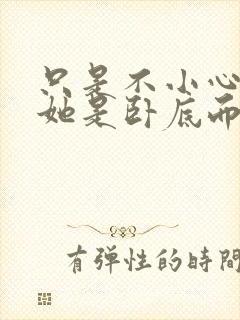 只是不小心
她是卧底而
有弹性的時間